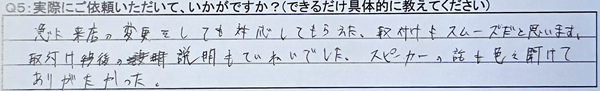 Q5:実際にご依頼いただいて、いかがですか?(できるだけ具体的に教えてください)
急な来店の変更をしても対応してもらえた、取付けもスムーズだと思います。
取付け後の説明もていねいでした、スピーカーの話も色々聞けて
ありがたかった。